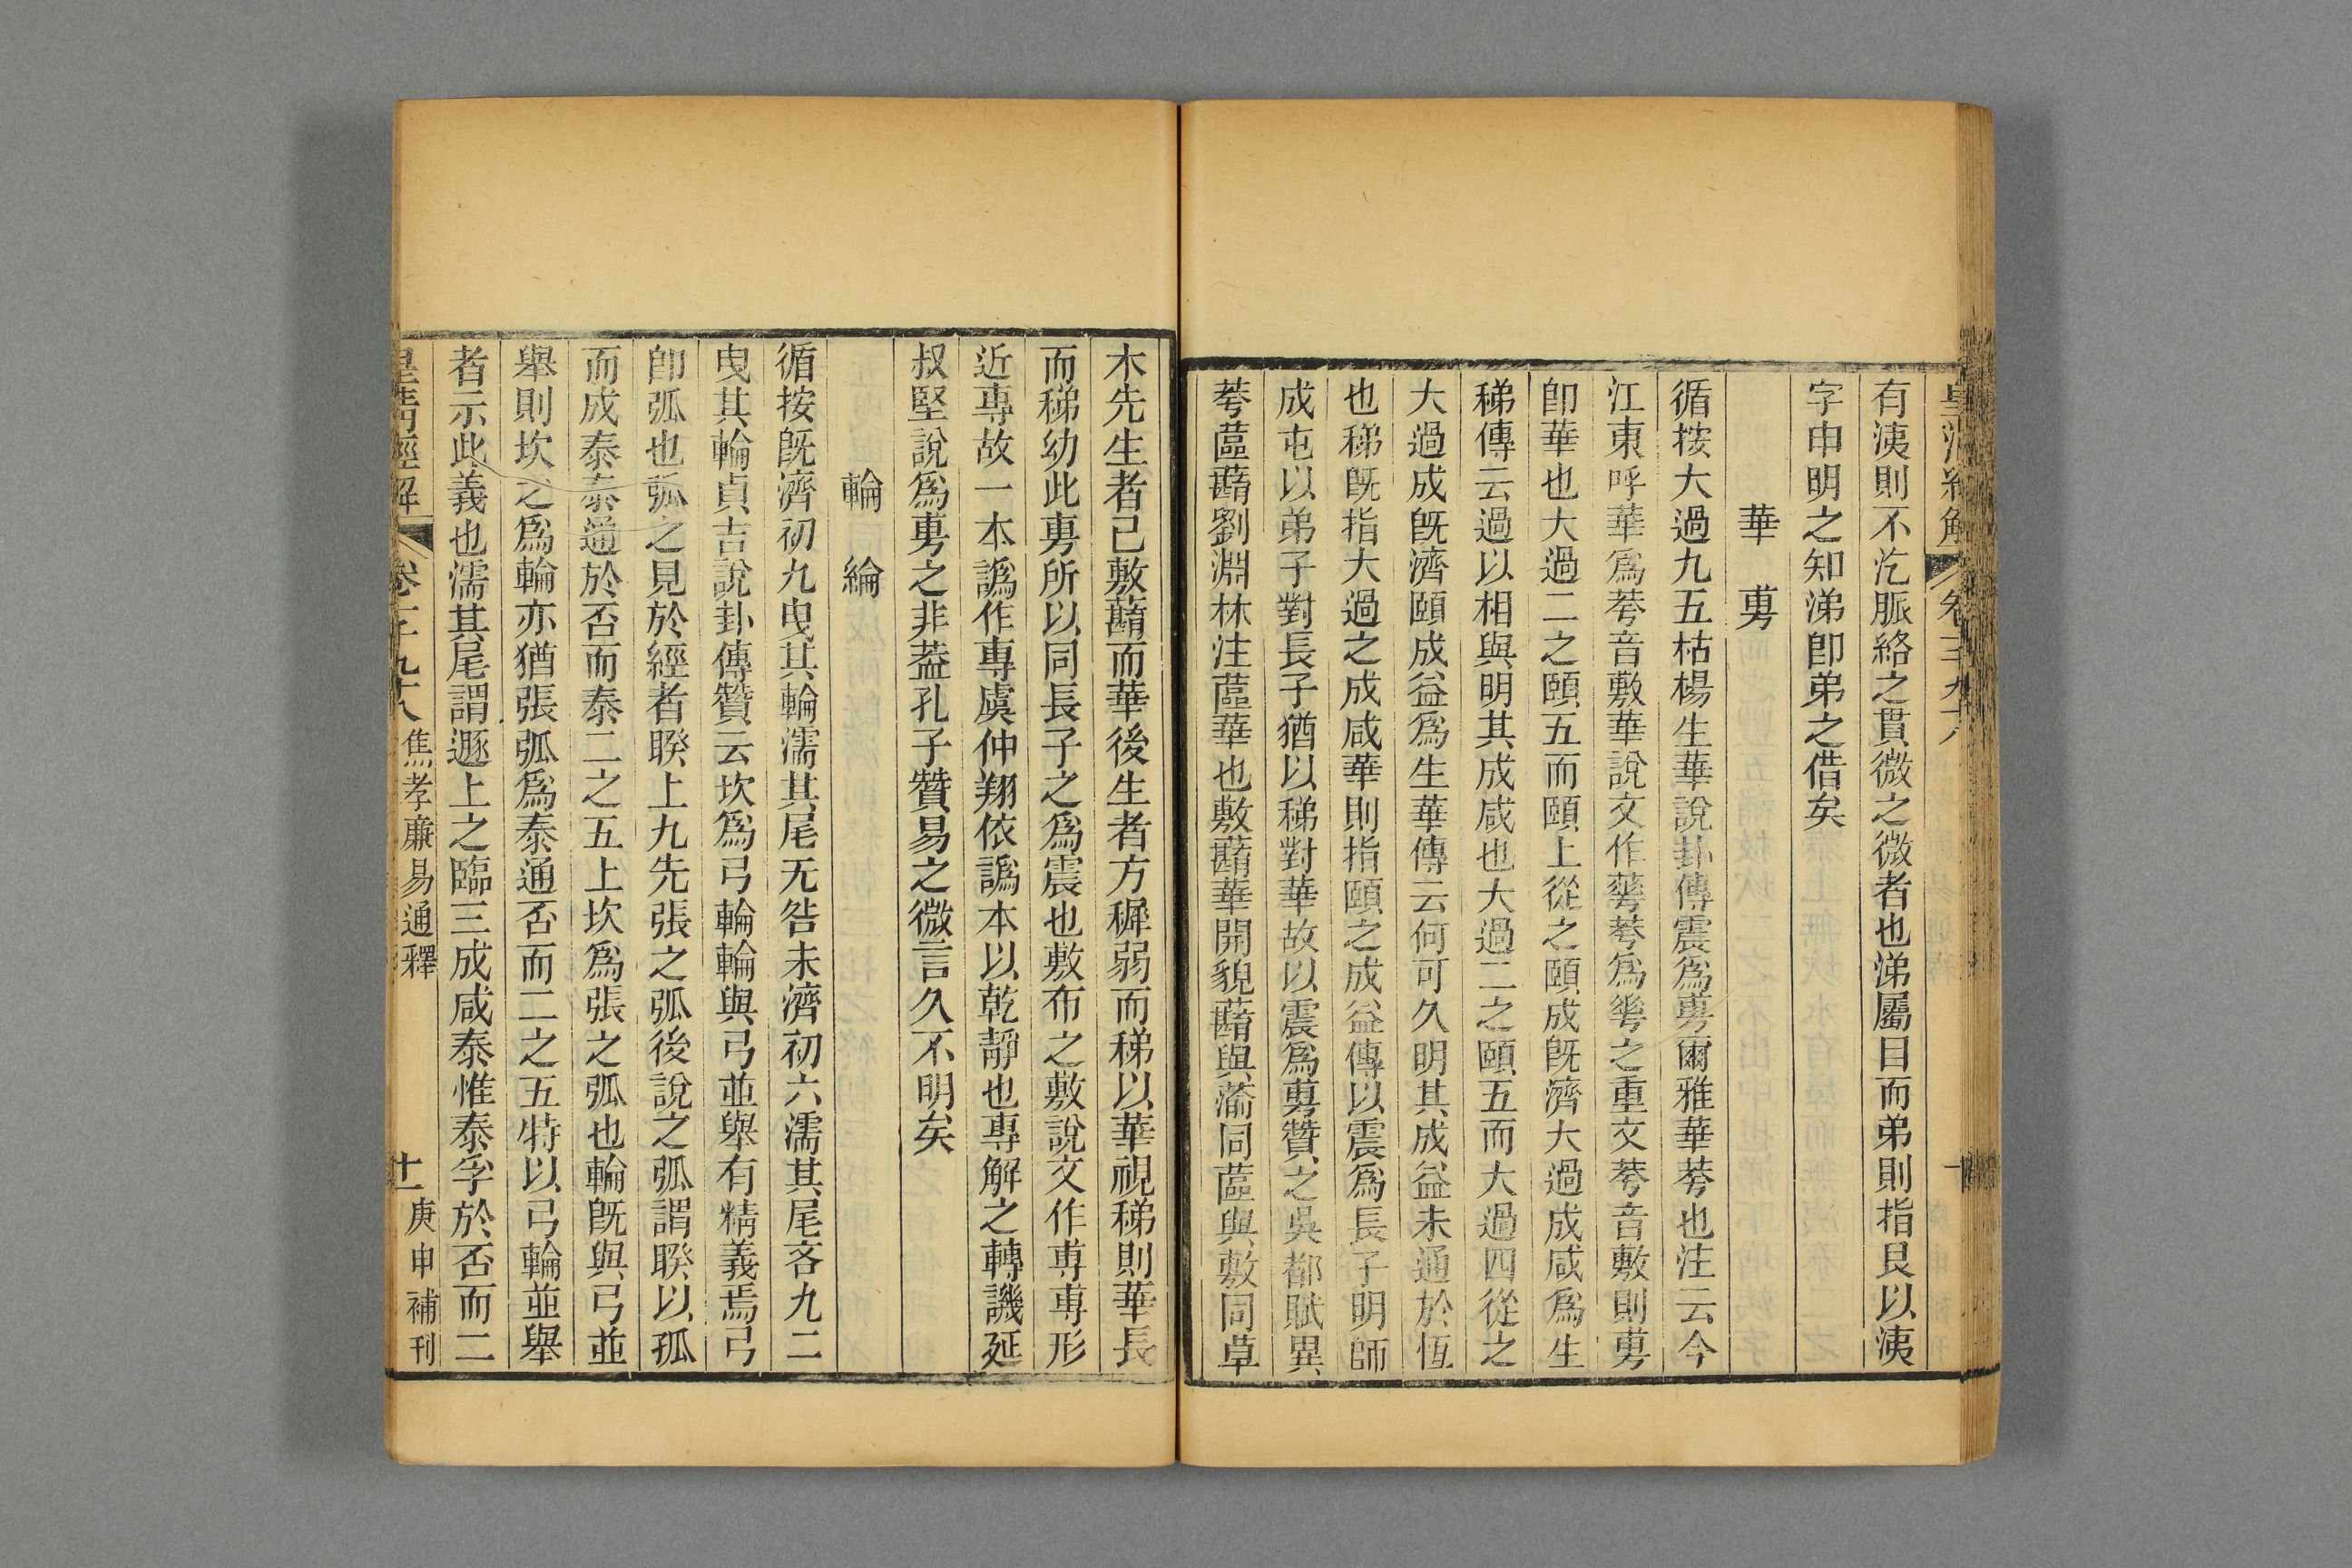 有洟則不汔脈絡之貫微之微者也涕屬目而弟則指艮以洟
字申明之知涕卽弟之借矣
華 旉
循按大過九五枯楊生華說卦傳震爲旉爾雅華荂也注云今
江東呼華爲荂音敷華說文作蕚荂爲𠌶之重文荂音敷則旉
卽華也大過二之頤五而頤上從之頤成旣濟大過成咸爲生
稊傳云過以相與明其成咸也大過二之頤五而大過四從之
大過成旣濟頤成益爲生華傳云何可久明其成益未通於恆
也稊旣指大過之成咸華則指頤之成益傳以震爲長子明師
成屯以弟子對長子猶以稊對華故以震爲旉贊之吳都賦異
荂蓲蘛劉淵林注蓲華也敷蘛華開貌蘛與蘥同蓲與敷同草
木先生者已敷蘛而華後生者方穉弱而稊以華視稊則華長
而稊幼此旉所以同長子之爲震也敷布之敷說文作尃尃形
近專故一本譌作專虞仲翔依譌本以乾靜也專解之轉譏延
叔堅說爲旉之非葢孔子贊易之微言久不明矣
輪 綸
循按旣濟初九曳其輪濡其尾无咎未濟初六濡其尾吝九二
曳其輪貞吉說卦傳贊云坎爲弓輪輪與弓並舉有精義焉弓
卽弧也弧之見於經者睽上九先張之弧後說之弧謂睽以孤
而成泰泰通於否而泰二之五上坎爲張之弧也輪旣與弓並
舉則坎之爲輪亦猶張弧爲泰通否而二之五特以弓輪並舉
者示此義也濡其尾謂遯上之臨三成咸泰惟泰孚於否而二
皇清經解 卷千九十八 焦孝廉易通釋 十一 庚申補刊